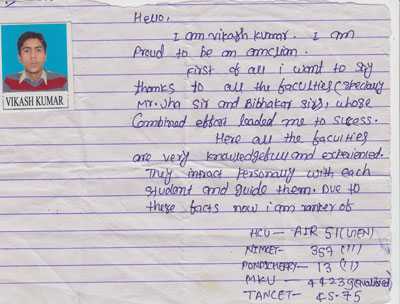 VIKASH KUMAR
Hello,
I am vikash kumar. I am
Proud to be an amction.
First of all i want to say
thanks to all the faculties (specialy
Mr. Jha Sir and Bibhakar sir), whose
Combined effort leaded me to sucess.
Here all the faculties
are very knowledgefull and experienced.
They intract personally with each
student and guide them. Due to
these facts now i am ranker of
HCU- AIR 51 (GEN)
NIMCET- 357 (")
PONDICHERRY- 13 (")
MKU - 4423 (qualified)
TANCET- 45.75